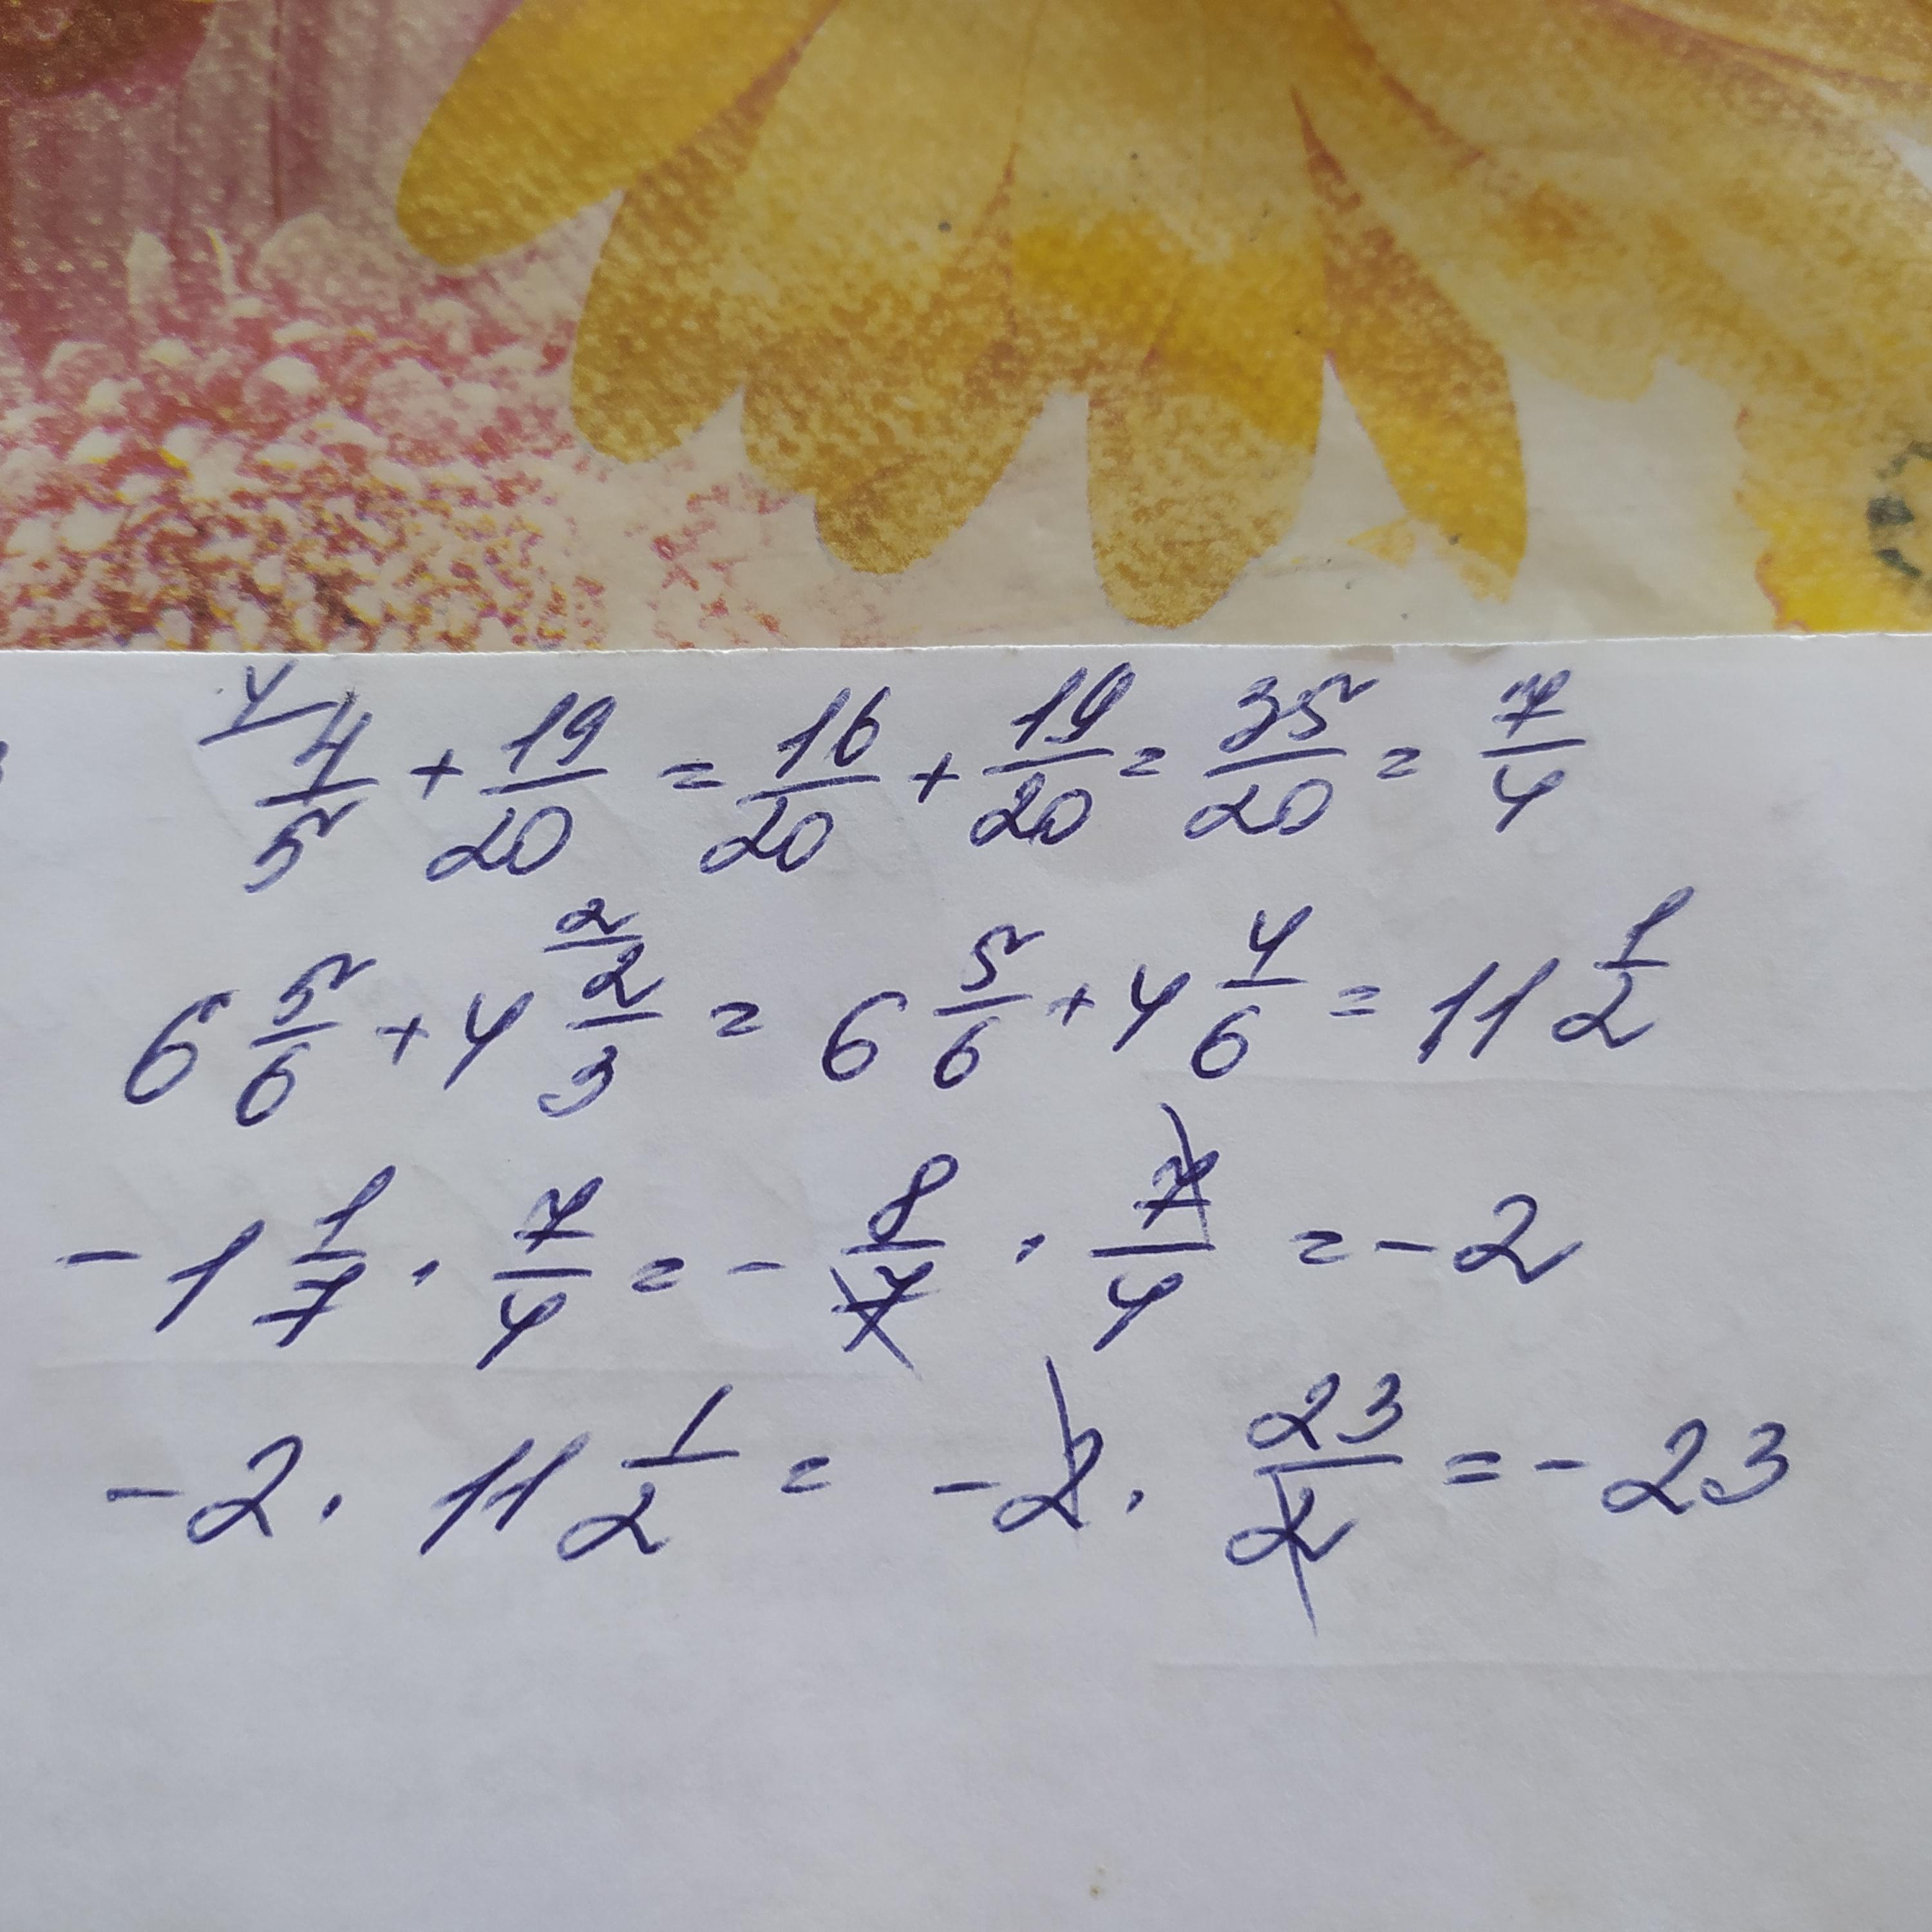 4/ 4/5 + 19/20 = 16/20 + 19/20 = 35/20 = 7/4
6 5/6 + 4 2/ 2/3 = 6 5/6 + 4 4/6 = 11 1/2
- 1 1/7 · 7/4 = - 8/7 · 7/4 = - 2
- 2 · 11 1/2 = - 2 · 23/2 = - 23